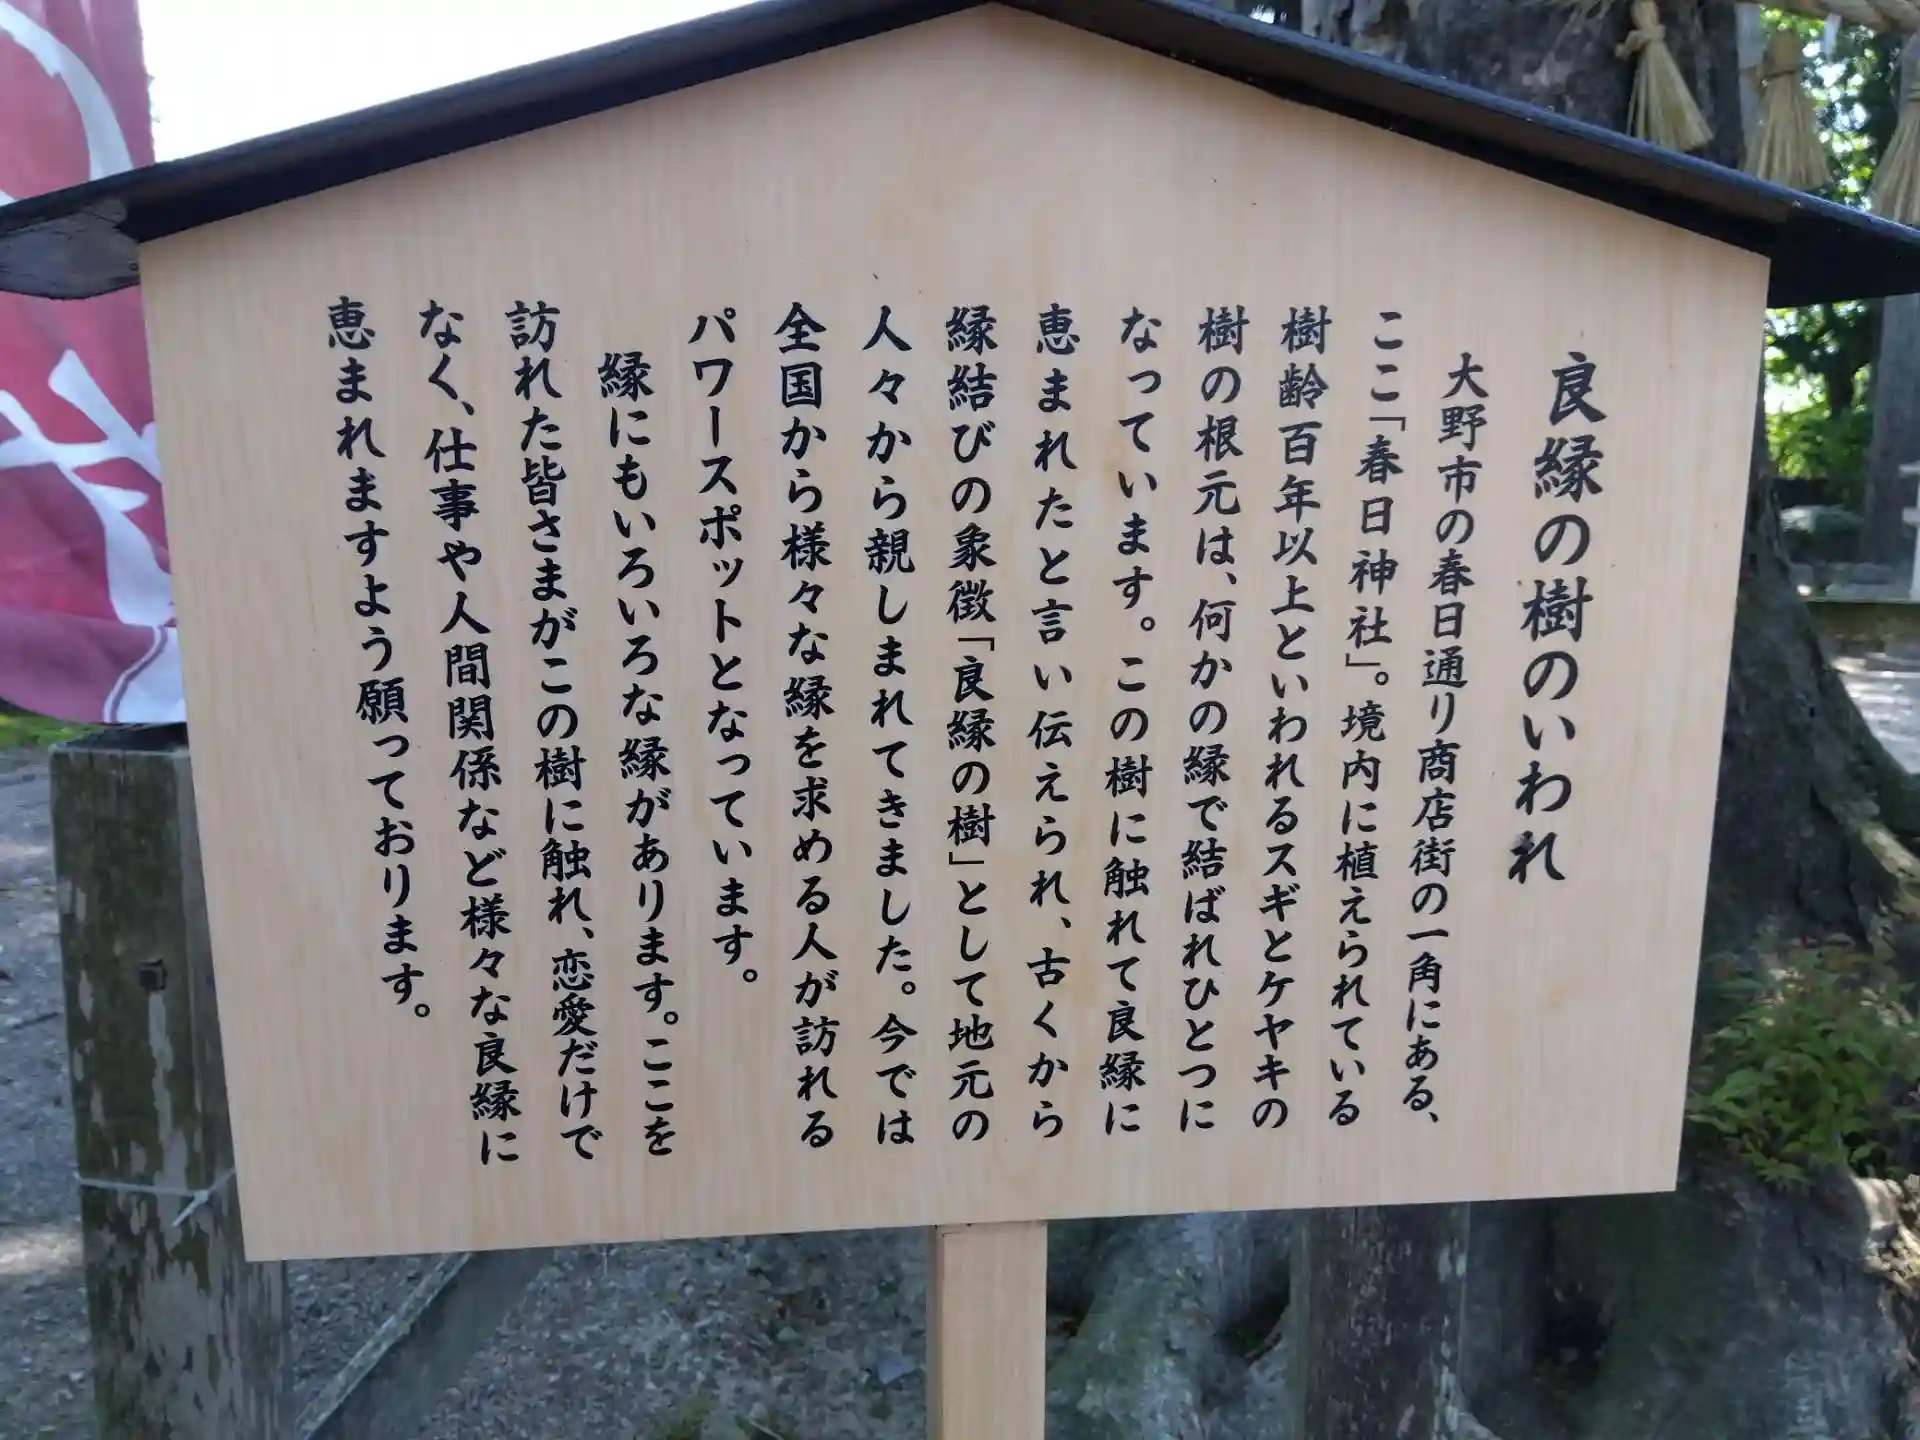 良縁の樹のいわれ
大野市の春日通り商店街の一角にある、
ここ「春日神社」。境内に植えられている
樹齢百年以上といわれるスギとケヤキの
樹の根元は、何かの縁で結ばれひとつに
なっています。この樹に触れて良縁に
恵まれたと言い伝えられ、古くから
縁結びの象徴「良縁の樹」として地元の
人々から親しまれてきました。今では
全国から様々な縁を求める人が訪れる
パワースポットとなっています。
縁にもいろいろな縁があります。ここを
訪れた皆さまがこの樹に触れ、恋愛だけで
なく、仕事や人間関係など様々な良縁に
恵まれますよう願っております。